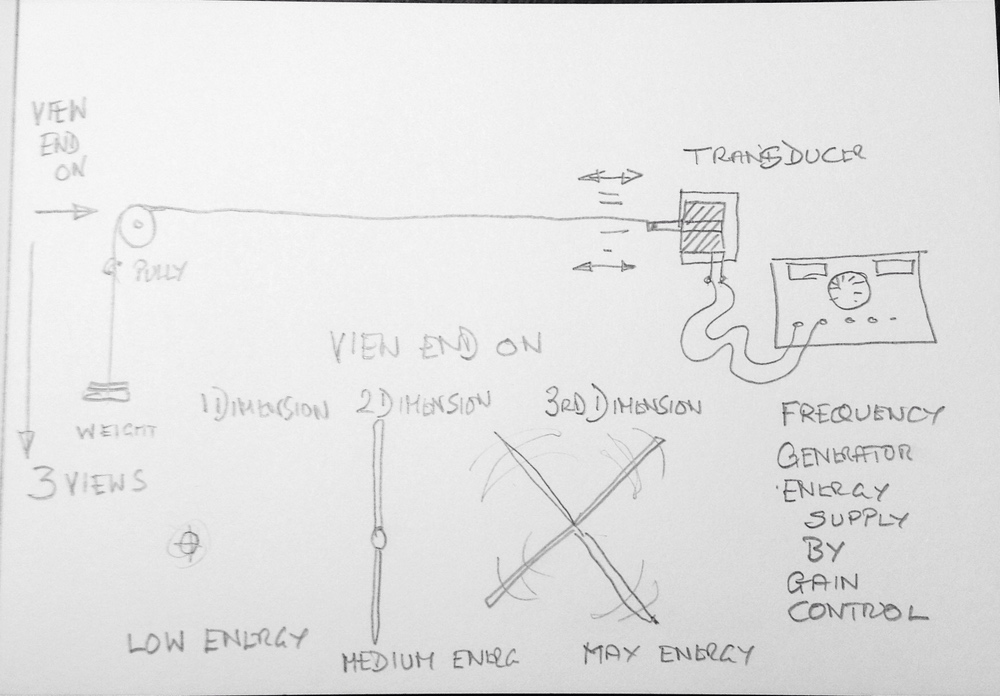 VIEW
END
ON
TRANSDUCER
PULLY
VIEW END ON
1 DIMENSION 2 DIMENSION 3RD DIMENSION
WEIGHT
3 VIEWS
FREQUENCY
GENERATOR
ENERGY
SUPPLY
BY
GAIN
CONTROL
LOW ENERGY
MEDIUM ENERG
MAX ENERGY